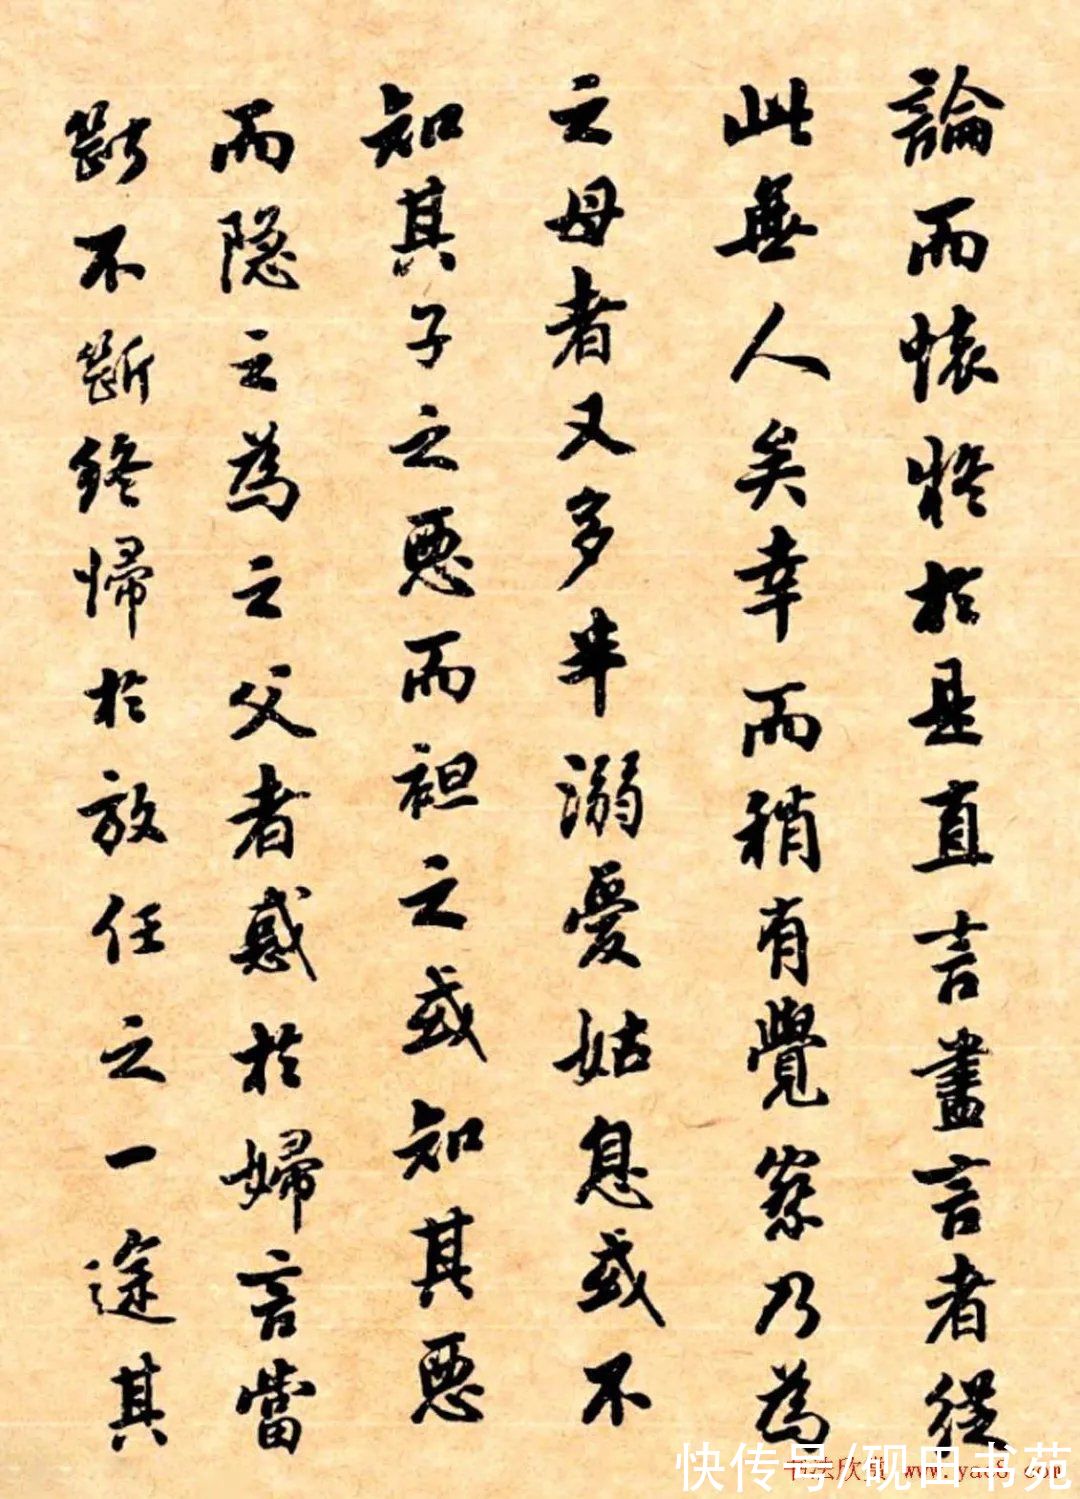 論而懐將於是直言盡言者從
此無人矣幸而稍有覺察乃為
之母者又多半溺愛姑息或不
知其子之惡而袒之或知其惡
而隐之為之父者惑於婦言當
斷不斷終歸於放任之一途其
快传号/砚田书苑
书法欣赏 www.yac8.com